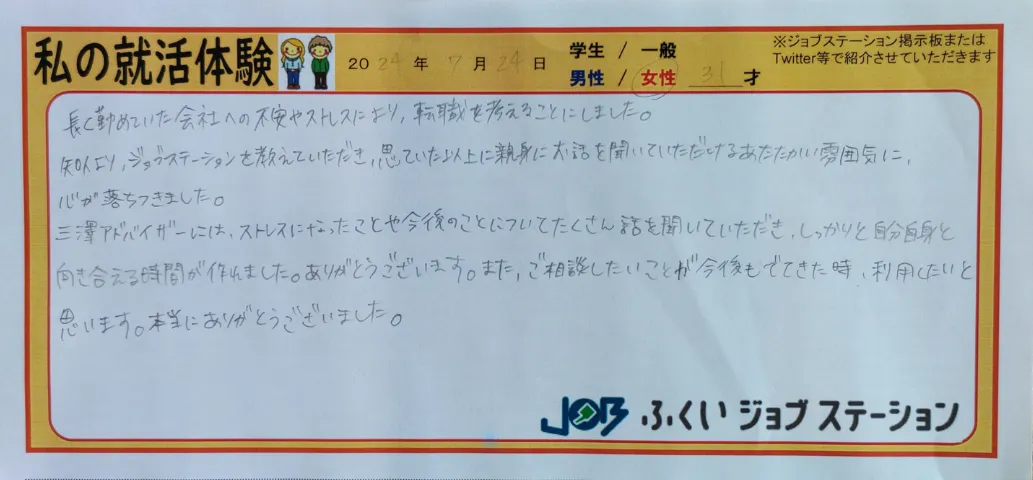 私の就活体験
2024年 7月 24日
学生 / 一般
男性 / 女性 31才
※ジョブステーション掲示板または
Twitter等で紹介させていただきます
長く勤めていた会社への不安やストレスにより，転職を考えることにしました。
知人より，ジョブステーションを教えていただき、思っていた以上に親身にお話を聞いていただけるあたたかい雰囲気に，
心が落ちつきました。
三澤アドバイザーには、ストレスになったことや今後のことについてたくさん話を聞いていただき、しっかりと自分自身と
向き合える時間が作れました。ありがとうございます。また，ご相談したいことが今後もでてきた時、利用したいと
思います。本当にありがとうございました。
JOB ふくい ジョブ ステーション